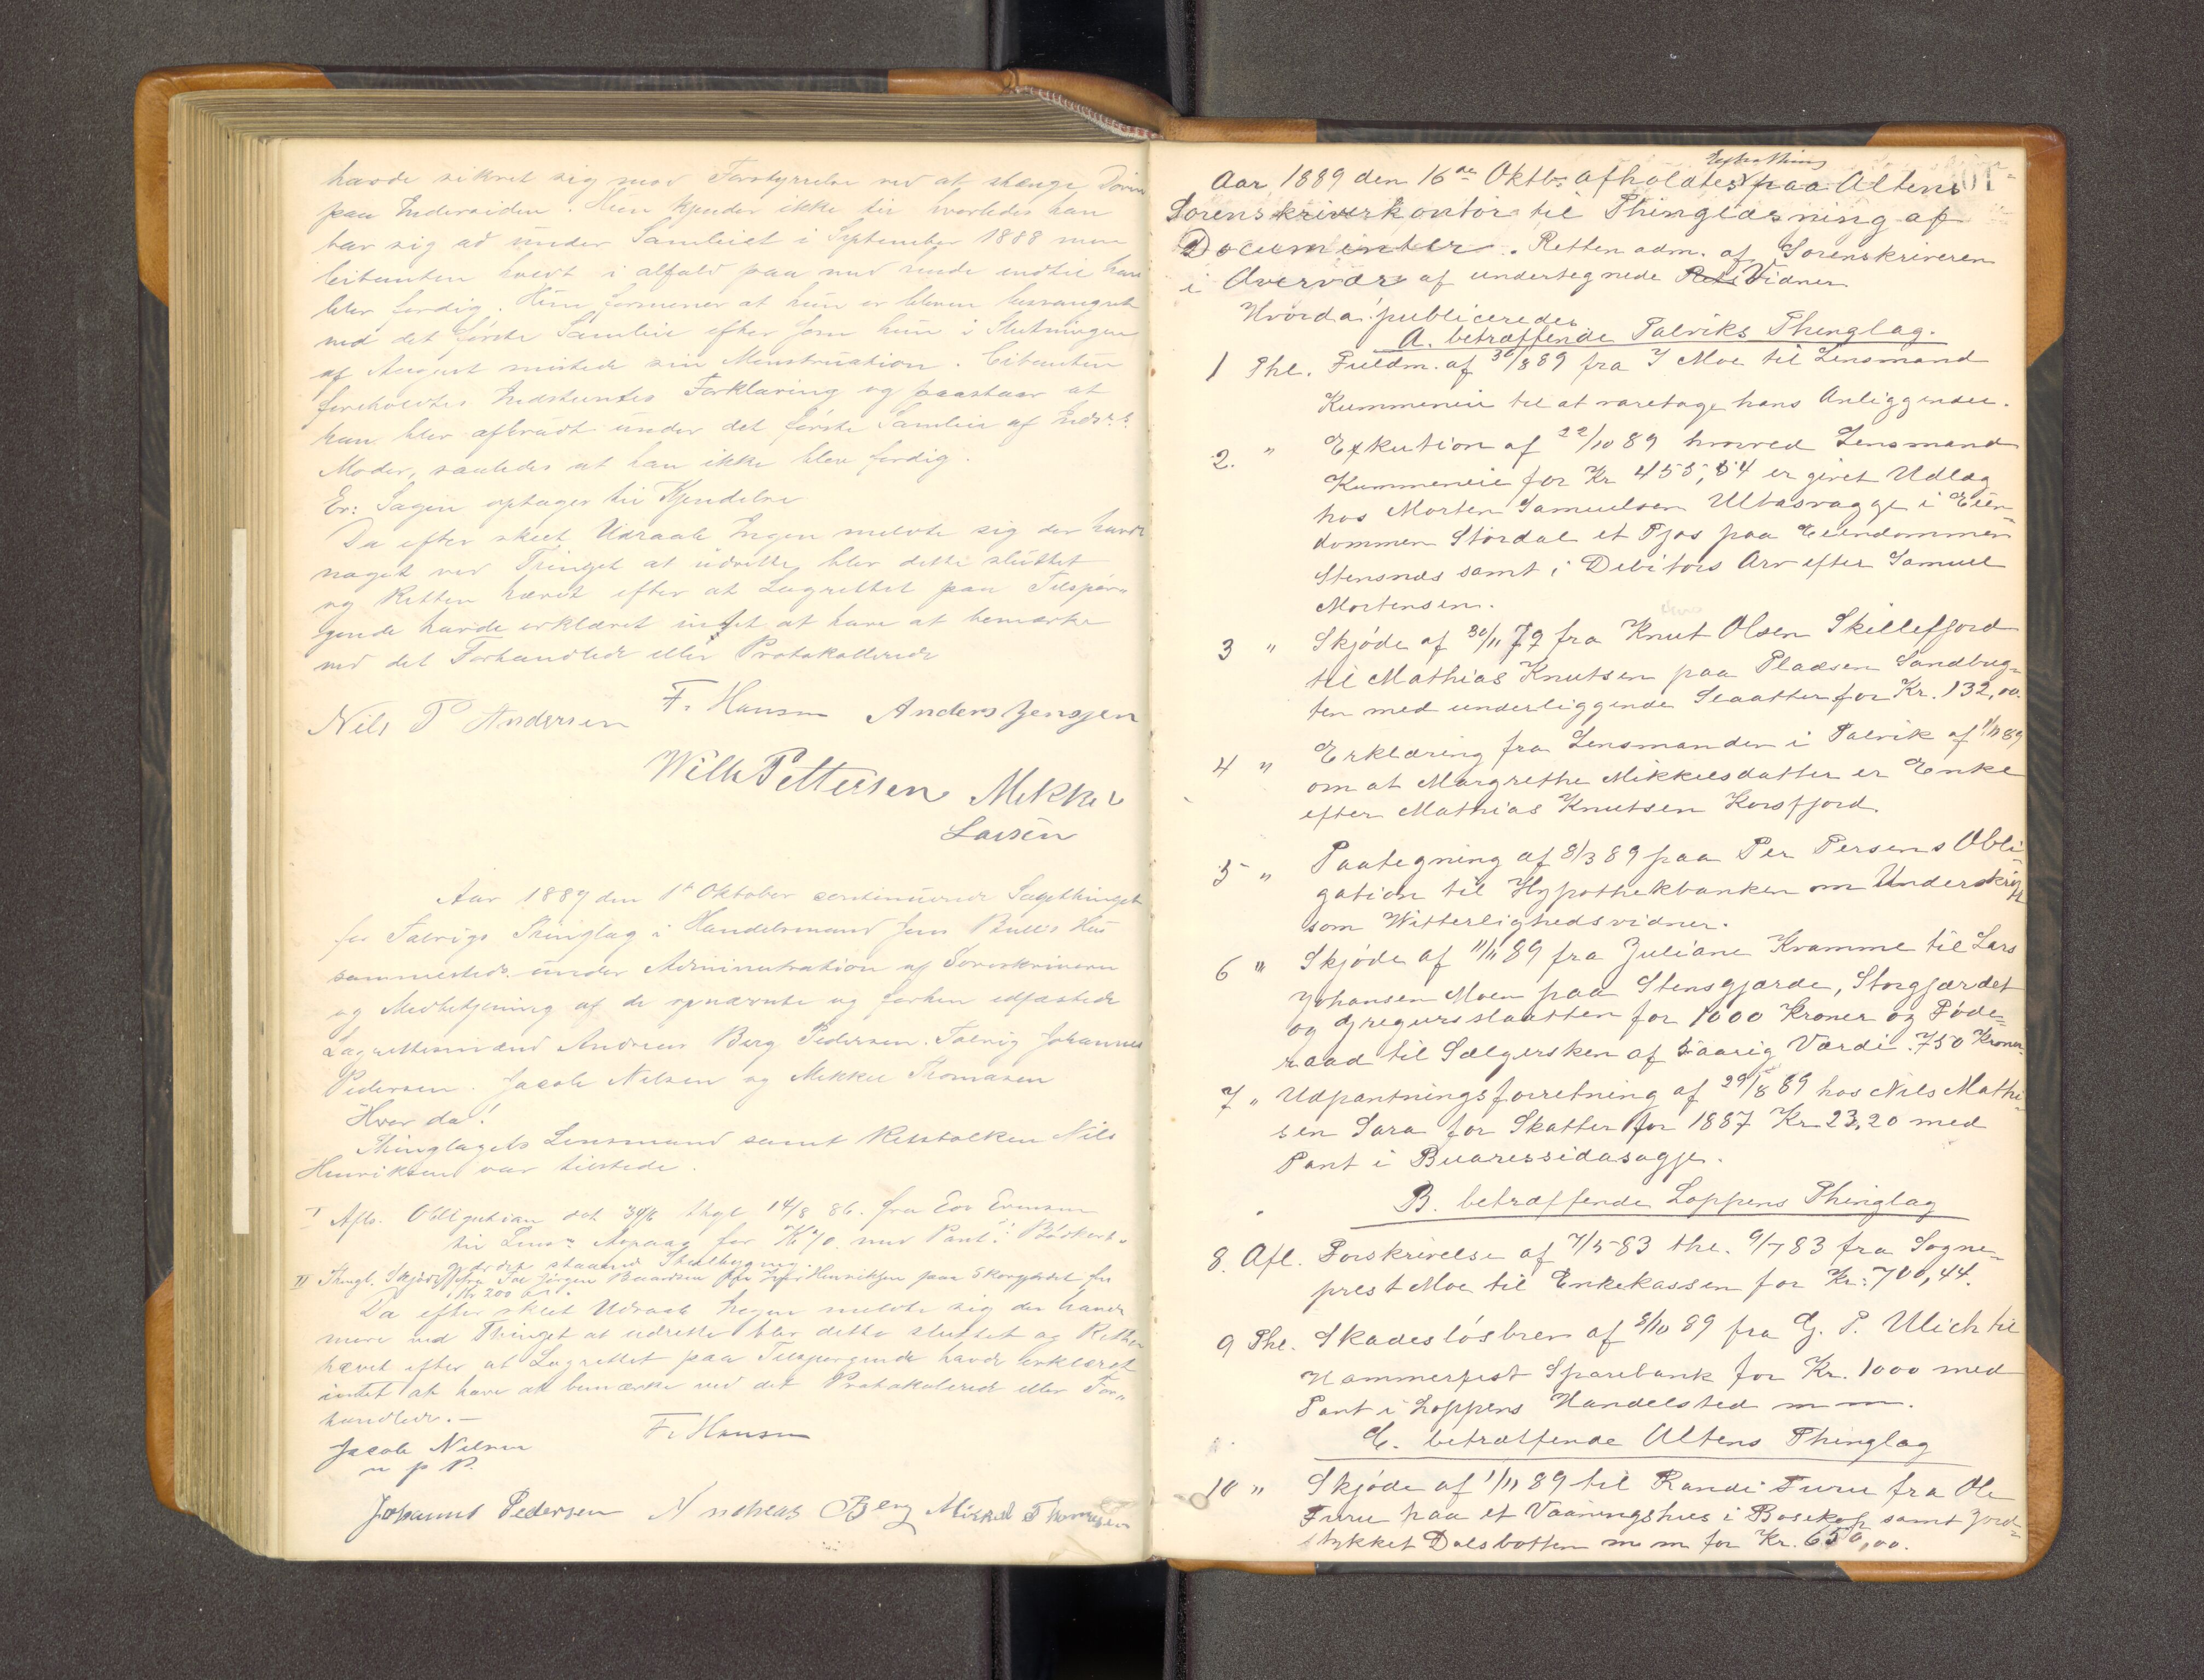 havde sikret sig mod Forstyrrelse ved at stænge Døren
paa Indersiden. Hun kjender ikke til hvorledes han
bar sig ad under Samleiet i September 1888 men
Citanten holdt i alfald paa med rende indtil han
blev færdig. Hun formener at hun er bleven besvangret
ved det første Samleie efter som hun i Slutningen
af August mistede sin Menstruation. Citanten
foreholdtes Indstevntes Forklaring og paastaar at
han blev afbrudt under det første Samleie af Indst.s
Moder, saaledes at han ikke blev færdig.
Er: Sagen optages til Kjendelse
Da efter skeet Udraab Ingen meldte sig der havde
noget ved Thinget at udrette, blev dette sluttet
og Retten hævet efter at Lagrettet paa Tilspør„
gende havde erklæret intet at have at bemærke
ved det Forhandlede eller Protokollerede
Nils P Andersen F. Hansen Anders Jensen
Wilh Pettersen Mikkel
Larsen
Aar 1889 den 1st Oktober continuerede Sagethinget
for Talvigs Thinglag i Handelsmand Jens Bulls Hus
sammesteds under Administration af Sorenskriveren
og Medbetjening af de opnævnte og forhen edfæstede
Lagrettesmænd Andreas Berg Pedersen. Talvig Johannes
Pedersen. Jacob Nilsen og Mikkel Thomasen
Hvor da!
Thinglagets Lensmand samt Retstolken Nils
Henriksen var tilstede.
I Afls. Obligation dat 30/6 thgl 14/8 86. fra
til Lensm. for Kr med Pant i
gaarden staaende Stuebygning.
II Thingl. Skjøde fra Jørgen Henriksen paa Skorgjærdet for
Kr 200 
Da efter skeet Udraab Ingen meldte sig der havde
mere ved Thinget at udrette blev dette sluttet og Retten
hævet efter at Lagrettet paa Tilspørgende havde erklæret
intet at have at bemærke ved det Protokolerede eller For„
handlede.—
Jacob Nilsen F. Hansen
m p P.
Johannes Pedersen Andreas Berg Mikkel Thomassen
Extrathing
Aar 1889 den 16de Oktb. afholdtes paa Altens
Sorenskriverkontor til Thinglæsning af
Documenter. Retten adm. af Sorenskriveren
i Overvær af undertegnede Rets Vidner
Hvorda publiceredes
A. betræffende Talviks Thinglag.
1 Thl. Fuldm. af 30/8 89 fra J Moe til Lensmand
Kummeneie til at varetage hans Anliggender.
2. " Exkution af 22/10 89 hvorved Lensmand
Kummeneie for Kr 455,54 er givet Udlæg
hos Morten Samuelsen Ulbasvagge i Eien=
dommen Stordal et Fjøs paa Eiendommen
Stensnæs samt i Debitors Arv efter Samuel
Mortensen.
3 " Skjøde af 30/11 79 fra Knut Olsen Skillefjord
til Mathias Knutsen paa Pladsen Sandbug=
ten med underliggende Slaatter for Kr. 132,00.
4 " Erklæring fra Lensmanden i Talvik af 1/11 89
om at Margrethe Mikkelsdatter er Enke
efter Mathias Knutsen Korsfjord.
5 " Paategning af 8/3 89 paa Per Persens Obli=
gation til Hypothekbanken om Underskrift
som Witterlighedsvidner.
6 " Skjøde af 11/11 89 fra Juliane Kramme til Lars
Johansen Moen paa Stensgjærde, Storgjærdet
og Gregursslaatten for 1000 Kroner og Føde=
raad til Sælgersken af 5aarig Værdi. 750 Kroner.
7 " Udpantningsforretning af 29/8 89 hos Nils Mathi=
sen Sara for Skatter for 1887 Kr 23,20 med
Pant i Buaressidasagge.
B. betræffende Loppens Thinglag
8. Afl. Forskrivelse af 7/5 83 thl. 9/7 83 fra Sogne=
prest Moe til Enkekassen for Kr: 700,44.
9 Thl. Skadesløsbrev af 8/10 89 fra G. P. Ulich til
Hammerfest Sparebank for Kr. 1000 med
Pant i Loppens Handelsted m m.
C. betræffende Altens Thinglag
10 " Skjøde af 1/11 89 til Randi Furu fra Ole
Furu paa et Vaaningshus i Bosekop samt Jord=
stykket Dalsbotten m m for Kr. 650,00.